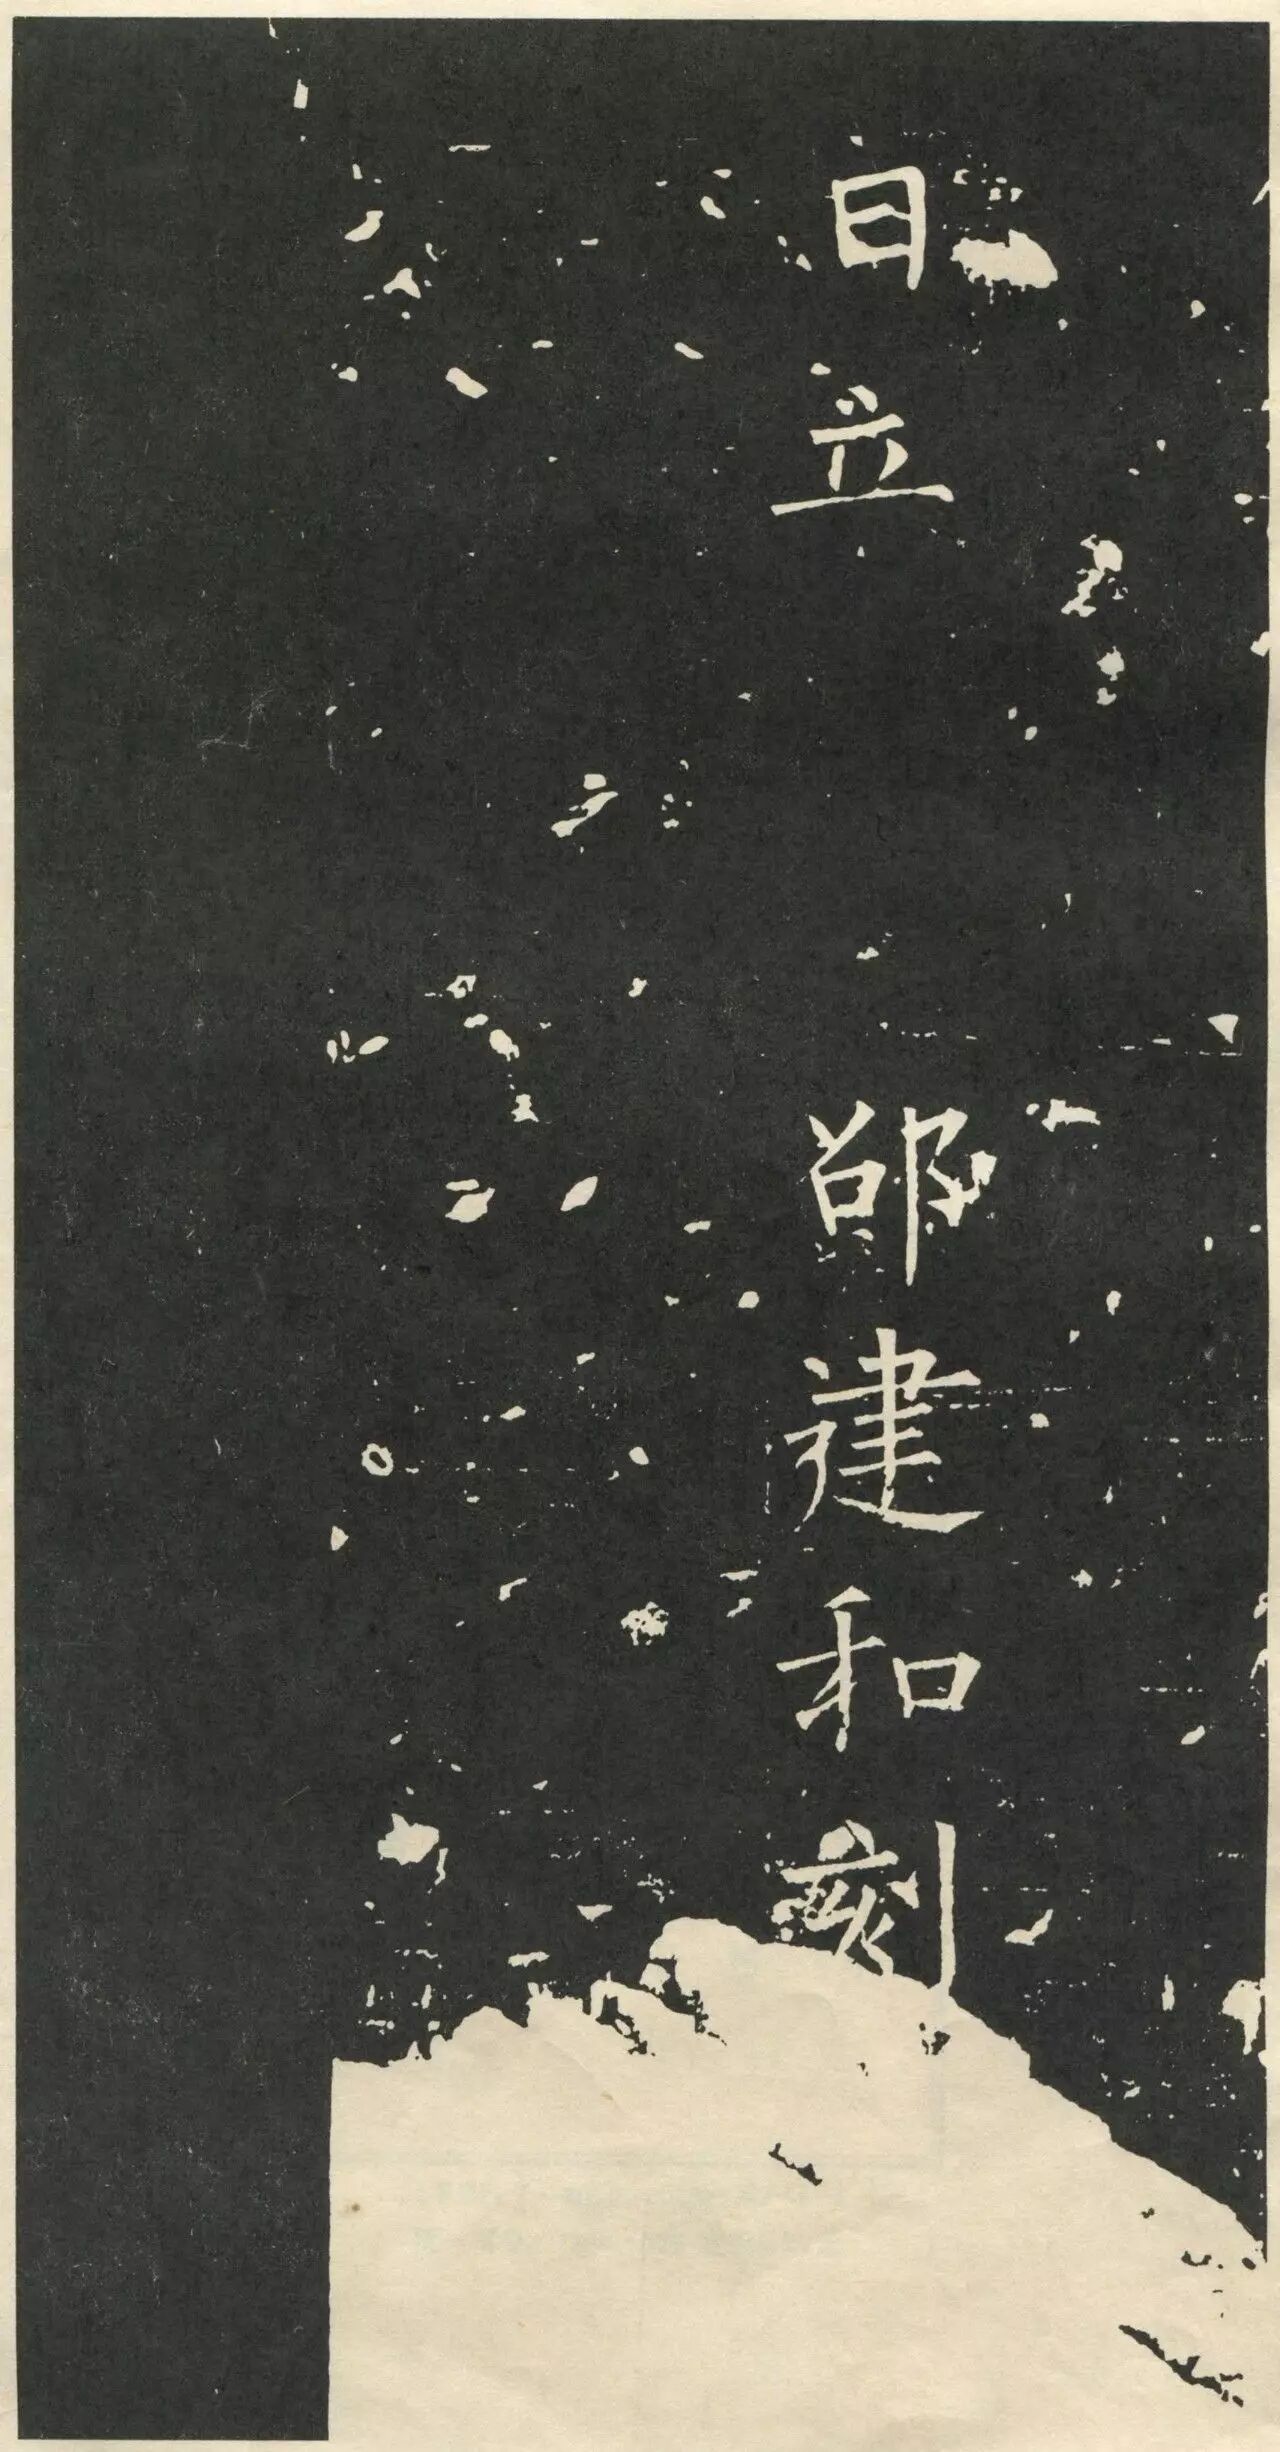 日立　邵建和刻